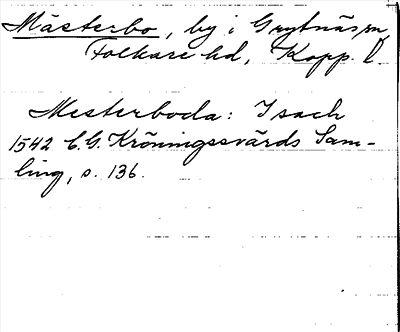 Mästerbo, by i Grytnäs sn,
Folkare hd, Kopp. l.
Mesterboda: Isach
1542 C.G. Kröningssvärds Sam-
ling, s. 136.